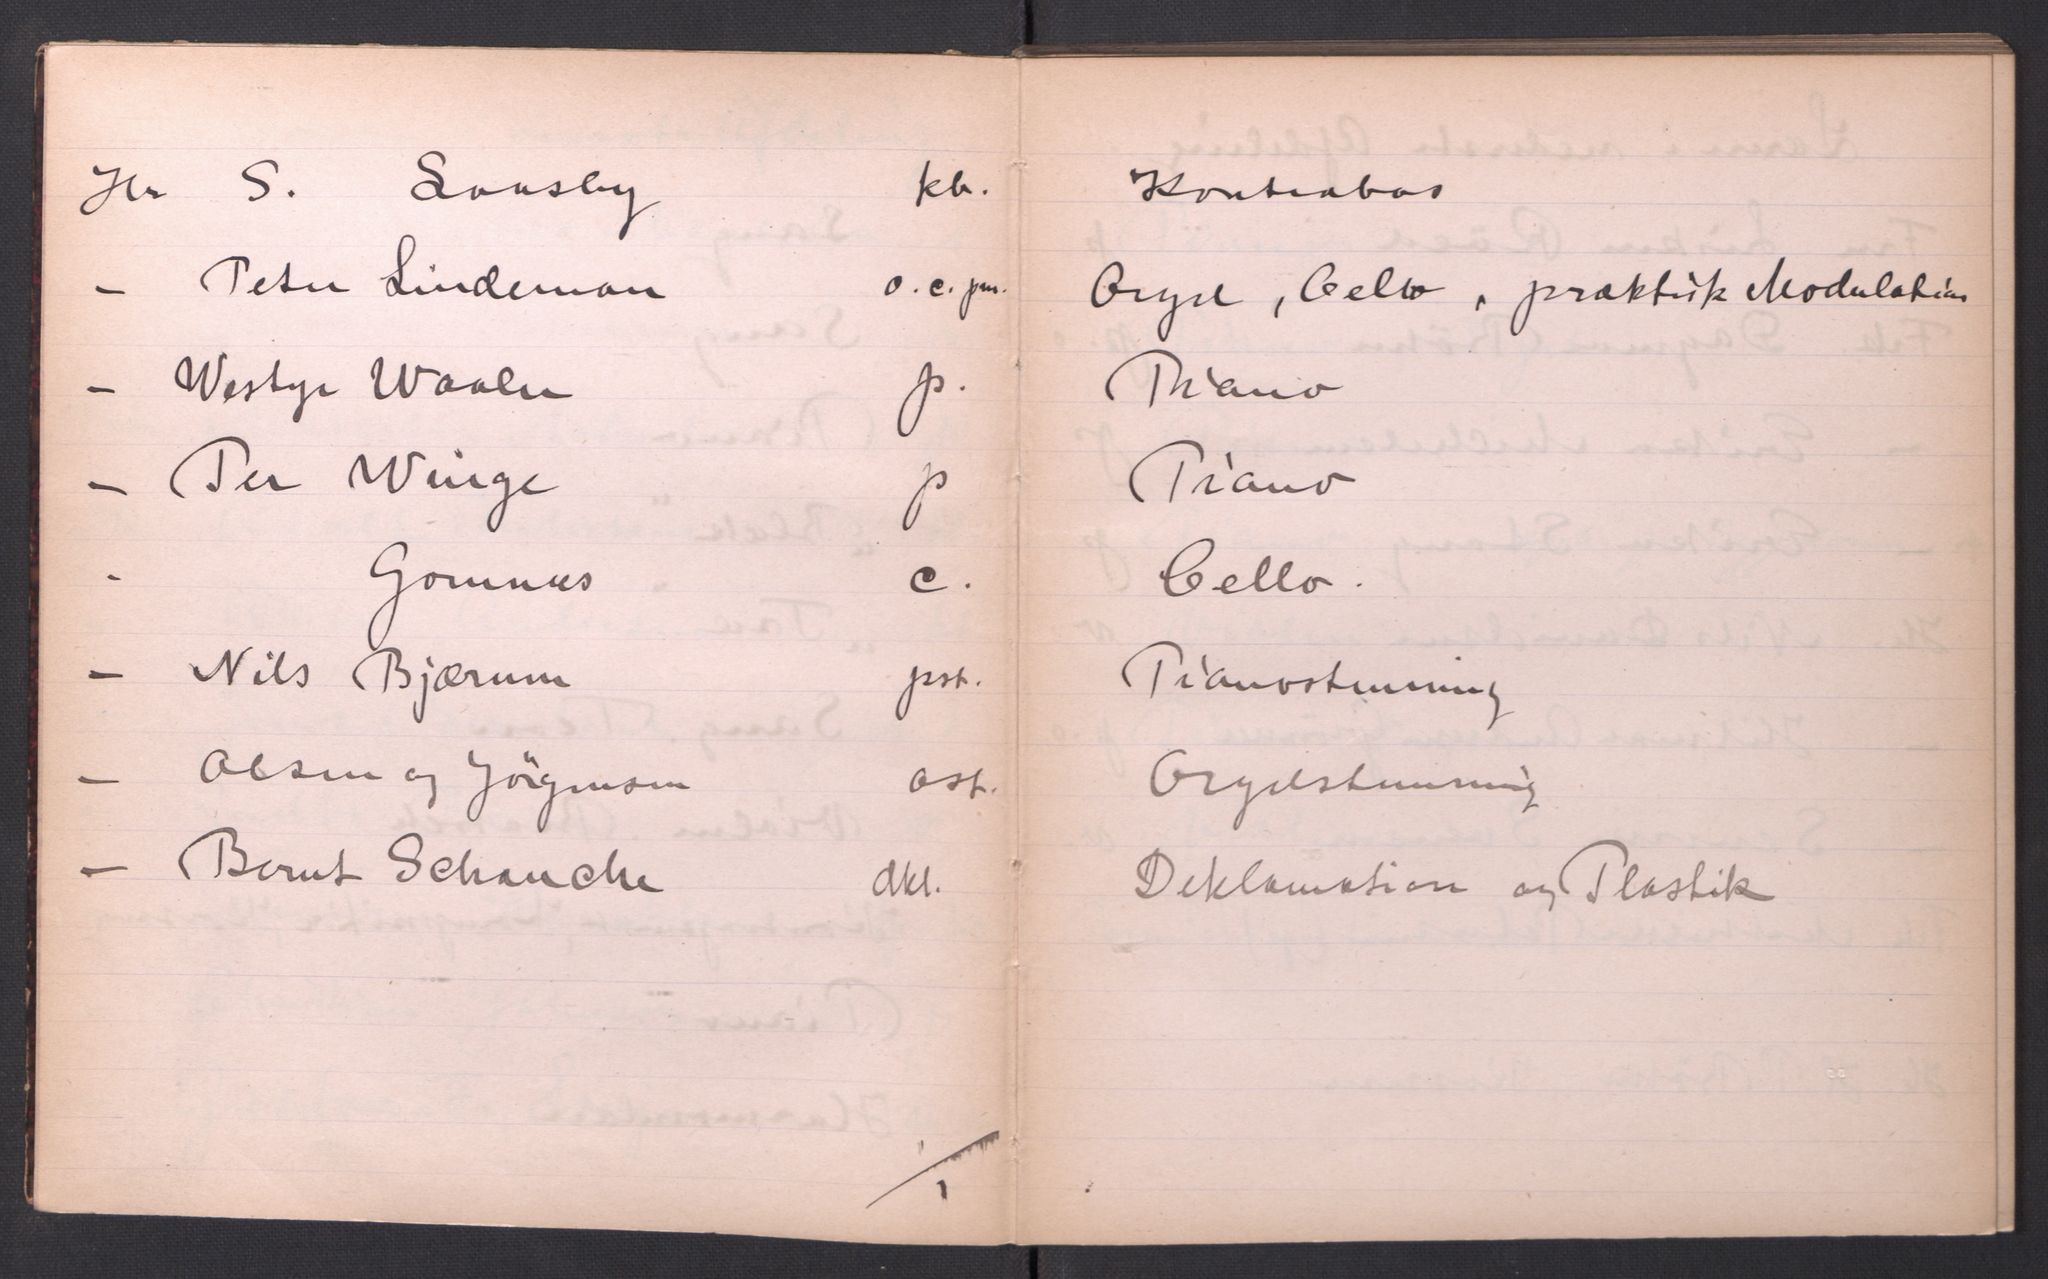 Hr S. Laasby kb. Kontrabas
— Peter Lindeman o. c. pm. Orgel, Cello, praktisk Modulation
— Westye Waaler p. Piano
— Per Winge p Piano
- Gomnæs c. Cello.
— Nils Bjærum pst. Pianostemning
— Olsen og Jörgensen ost. Orgelstemning
— Bernt Schanche dkl. Deklamation og Plastik